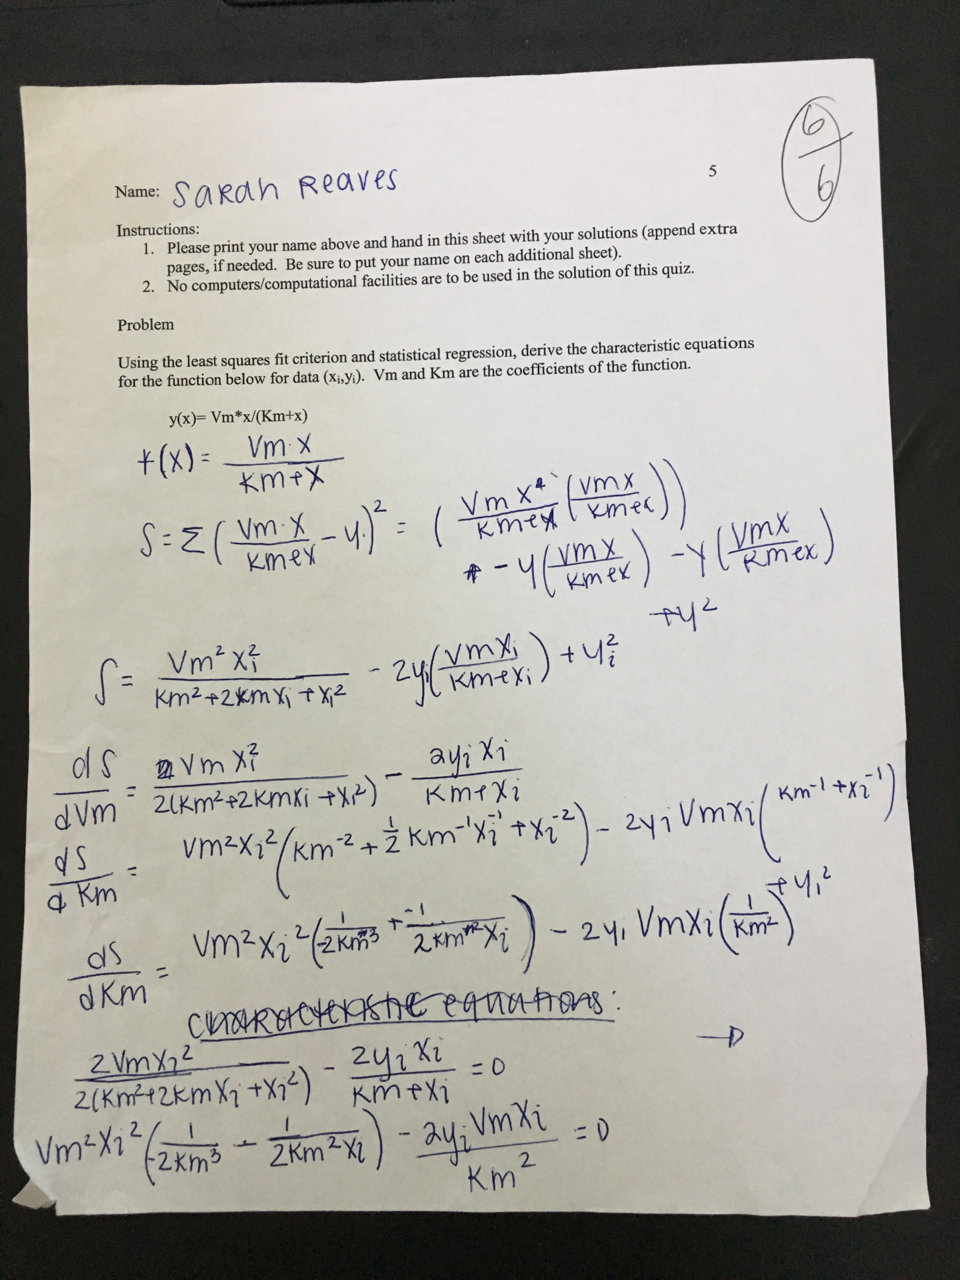 6/6
5
Name: Sarah Reaves
Instructions:
1. Please print your name above and hand in this sheet with your solutions (append extra
pages, if needed. Be sure to put your name on each additional sheet).
2. No computers/computational facilities are to be used in the solution of this quiz.
Problem
Using the least squares fit criterion and statistical regression, derive the characteristic equations
for the function below for data (xᵢ,yᵢ). Vm and Km are the coefficients of the function.
y(x)= Vm*x/(Km+x)
f(x) = Vm·x / (Km+x)
S = Σ (Vm·x / (Km+x) - y)² = (Vm x / (Km+x) (Vm x / (Km+x))
- y (Vm x / (Km+x)) - y (Vm x / (Km+x))
+y²
S = Vm² xᵢ² / (Km² + 2Km xᵢ + xᵢ²) - 2yᵢ (Vm xᵢ / (Km+xᵢ)) + yᵢ²
dS/dVm = 2Vm xᵢ² / 2(Km² + 2Km xᵢ + xᵢ²) - 2yᵢ xᵢ / (Km+xᵢ)
dS/dKm = Vm² xᵢ² (Km⁻² + ½ Km⁻¹ xᵢ⁻¹ + xᵢ⁻²) - 2yᵢ Vm xᵢ (Km⁻¹ + xᵢ⁻¹)
+ yᵢ²
dS/dKm = Vm² xᵢ² (1/-2Km³ + -1/2Km² xᵢ) - 2yᵢ Vm xᵢ (1/Km²)
characteristic equations:
→
2Vm xᵢ² / 2(Km² + 2Km xᵢ + xᵢ²) - 2yᵢ xᵢ / (Km+xᵢ) = 0
Vm² xᵢ² (1/-2Km³ - 1/2Km² xᵢ) - 2yᵢ Vm xᵢ / Km² = 0